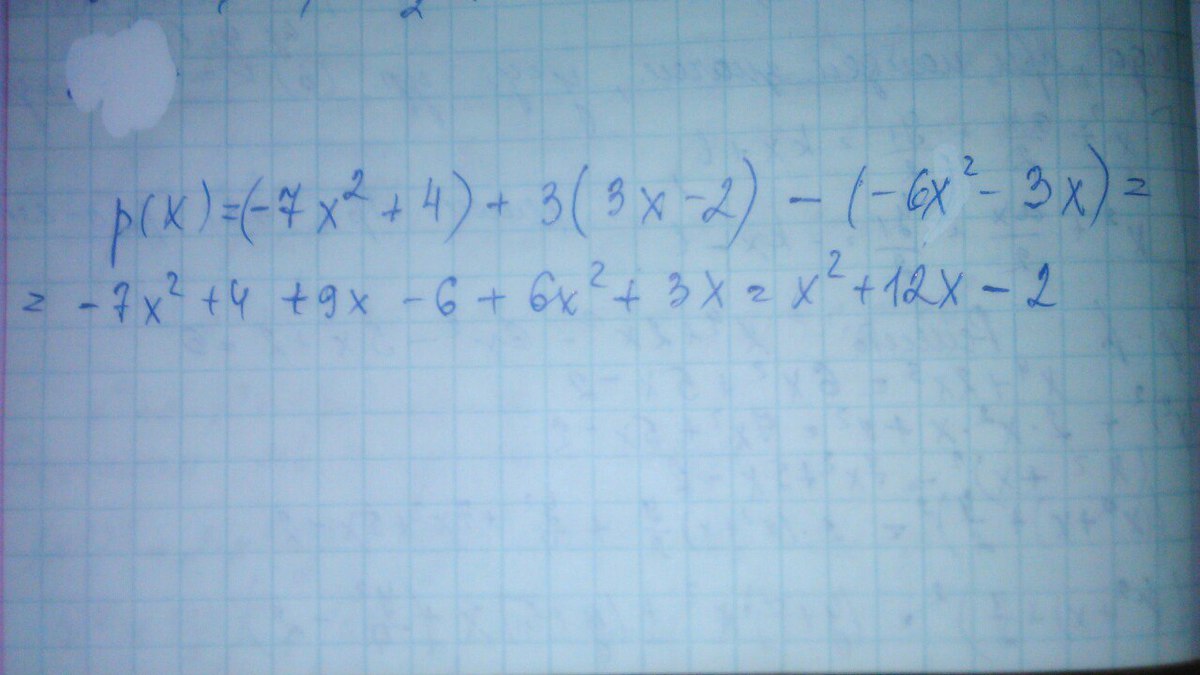 p(x)=(-7x²+4)+3(3x-2)-(-6x²-3x)=
= -7x²+4+9x-6+6x²+3x=x²+12x-2